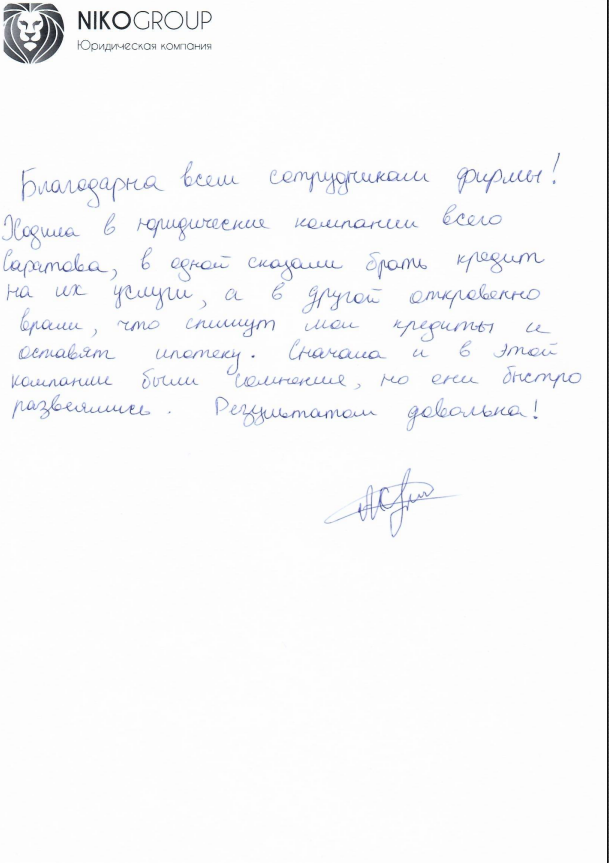 NIKOGROUP
Юридическая компания
Благодарна всем сотрудникам фирмы!
Ходила в юридические компании всего
Саратова, в одной сказали брать кредит
на их услуги, а в другой откровенно
врали, что спишут мои кредиты и
оставят ипотеку. Сначала и в этой
компании были сомнения, но они быстро
развеялись. Результатом довольна!